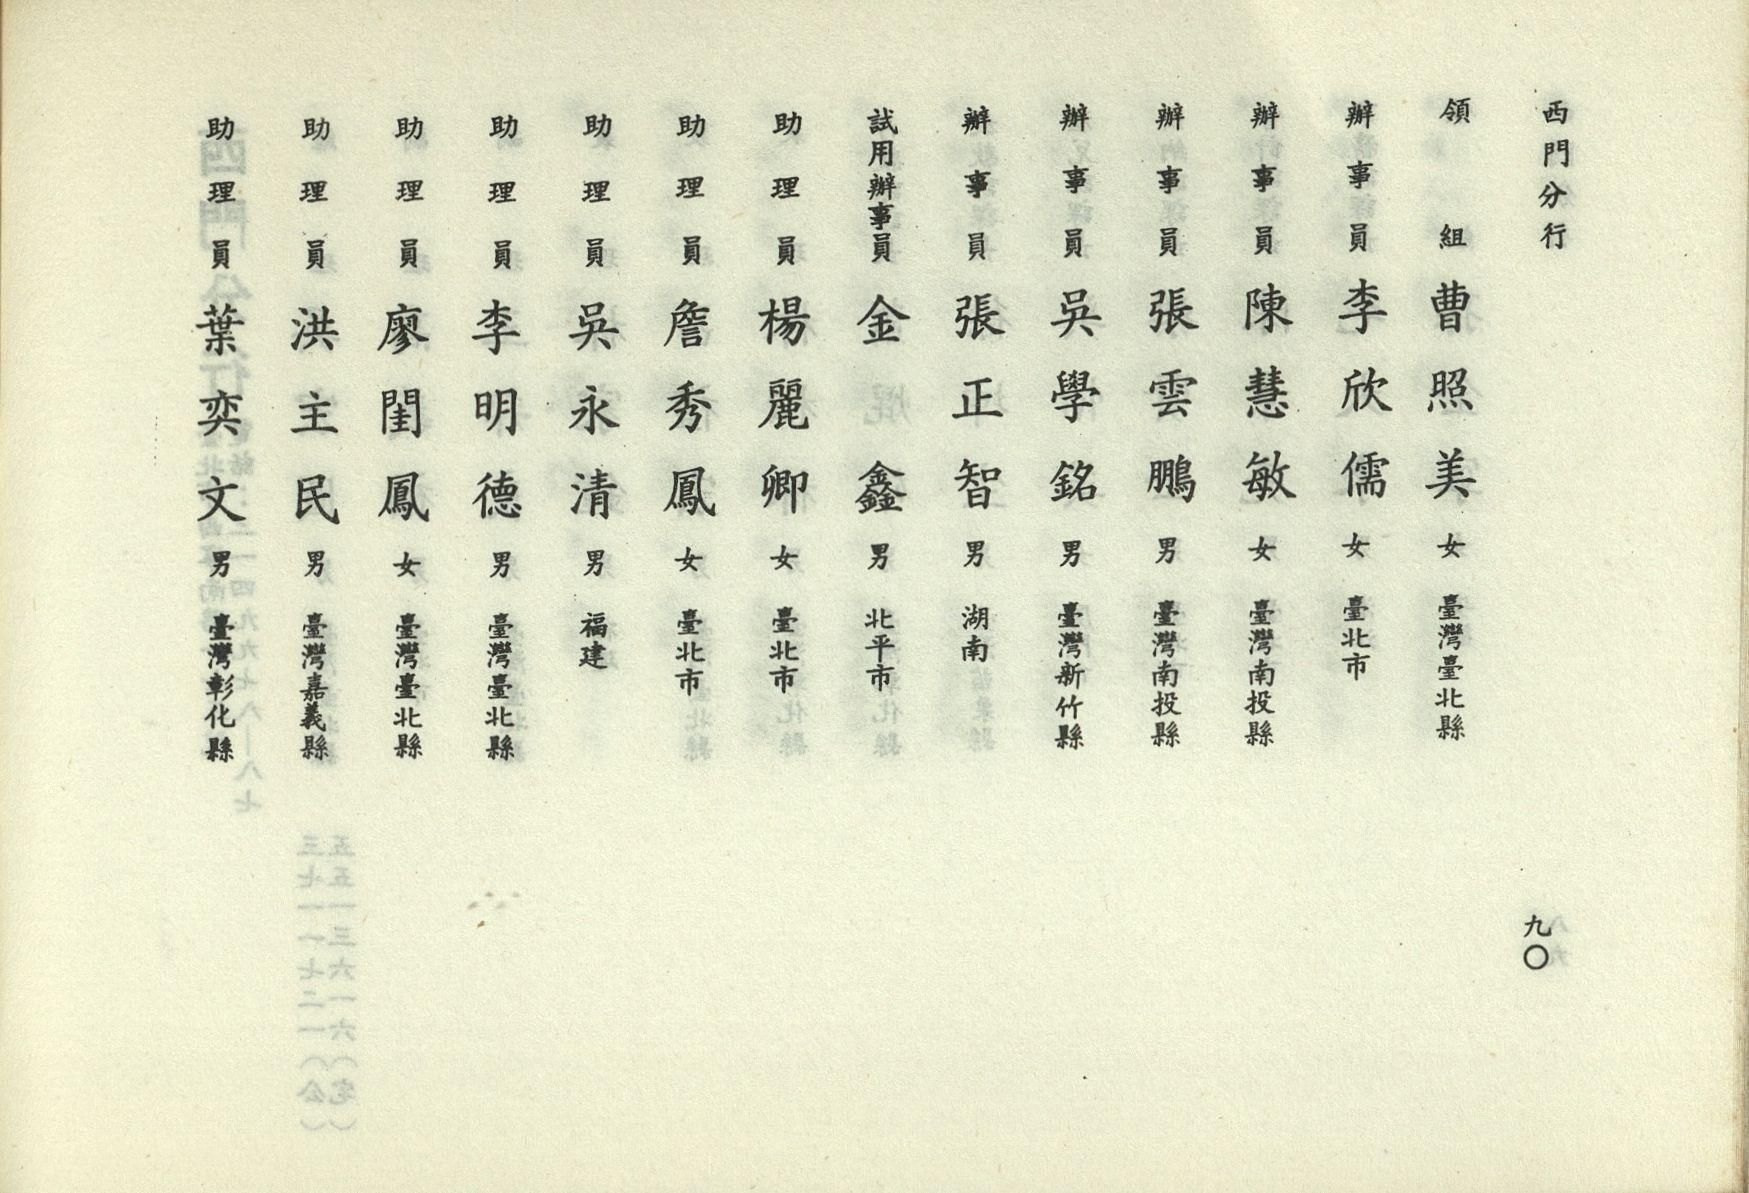 西門分行
領組曹照美女臺灣臺北縣
辦事員李欣儒女臺北市
辦事員陳慧敏女臺灣南投縣
辦事員張雲鵬男臺灣南投縣
辦事員吳學銘男臺灣新竹縣
辦事員張正智男湖南
試用辦事員金鑫男北平市
助理員楊麗卿女臺北市
助理員詹秀鳳女臺北市
助理員吳永清男福建
助理員李明德男臺灣臺北縣
助理員廖閨鳳女臺灣臺北縣
助理員洪主民男臺灣嘉義縣
助理員葉奕文男臺灣彰化縣
九〇